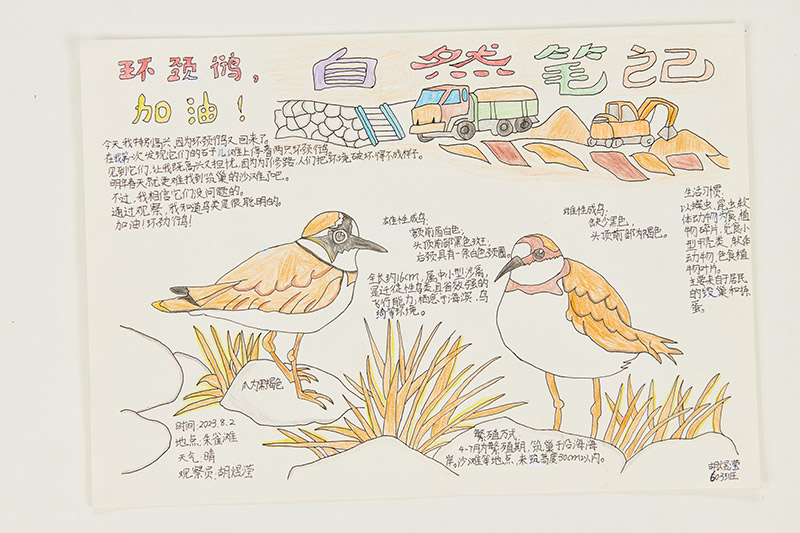 环颈鸻,
加油!
自然笔记
今天,我特别高兴,因为环颈鸻又回来了。
在我第一次发现它们的石子儿滩上停着两只环颈鸻。
见到它们,让我既高兴又担忧,因为为了修路,人们把环境破坏得不成样子。
明年春天就更难找到筑巢的沙滩了吧。
不过,我相信它们没问题的。
通过观察,我知道鸟类是很聪明的。
加油!环颈鸻!
雄性成鸟:
额前眉白色;
头顶前部黑色斑;
后颈具有一条白色颈圈。
雌性成鸟:
缺少黑色,
头顶前部为褐色。
生活习惯:
以蠕虫、昆虫软
体动物为食,植
物碎片,兼食小
型甲壳类、软体
动物,也食植
物叶片。
主要来自于居民
的
筑巢和
蛋。
全长约16cm,属中小型涉禽,
是迁徙性鸟类,具有极强的
飞行能力;栖息于海滨、
等环境。
爪为黑褐色
时间:2023.8.2
地点:朱雀滩
天气:晴
观察员:胡煜滢
繁殖方式:
4-7月为繁殖期,筑巢于沿海海
岸。沙滩等地点,
筑高度30cm以内。
胡煜滢
603班